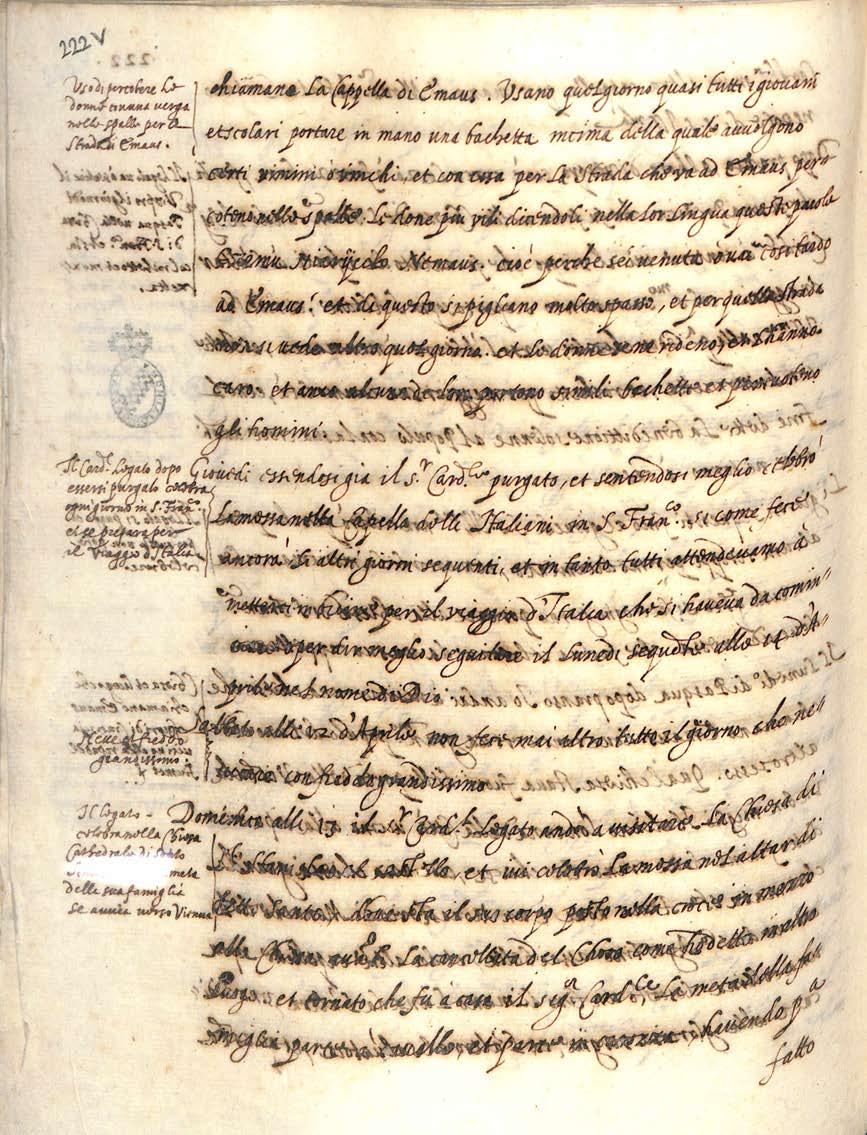 222V
Uso di percotere Le
donne con una verga
nelle spalle per la
Strada di Emaus.
chiamano La Cappella di Emaus. Usano quel giorno quasi tutti i giovani
et scolari portare in mano una bachetta in cima della quale avvolgono
certi vimini o vinchi, et con essa per La Strada che va ad Emaus per=
coteno nelle spalle Le done più vili dicendoli nella lor Lingua queste parole
cioè perche sei venuta così tardo
ad Emaus? et di questo si pigliano molto spasso, et per quella strada
non si vede altro quel giorno. et Le donne se ne rideno, et L'hanno
caro, et anco alcune de loro portono simili bachette et percuoteno
gli homini.
Il Card. Legato dopo
essersi purgato celebra
ogni giorno in S. Franc.o
et se prepara per
il viaggio d'Italia
Giovedi essendosi gia il s.r Card.le purgato, et sentendosi meglio celebrò
La messa nella Capella delli Italiani in S. Franc.o si come fece
ancora li altri giorni sequenti, et in tanto tutti attendevamo à
metterci in ordine per il viaggio d'Italia che si haveva da comin=
ciare o per dir meglio seguitare il Lunedi sequente alli 14 d'A=
prile nel nome di Dio
neve et freddo
grandissimo
Sabbato alli 12 d'Aprile non fece mai altro tutto il giorno che ne=
vicare con freddo grandissimo
Il Legato
celebra nella Chiesa
Cathedrale di
metà
della sua famiglia
se avvia verso Vienna
Domenica alli 13 il s.r Card.le Legato andò a visitare La Chiesa di
S. Stanislao del castello, et vi celebrò La messa nel altar di
detto Santo, dove sta il suo corpo posto nella croce in mezzo
alla Chiesa avanti La del Choro come ho detto in altro
Luogo. et tornato che fu a casa il seg.r Card.le La metà della fa=
meglia partete à cavallo et parte in carrozza, havendo p.a
fatto